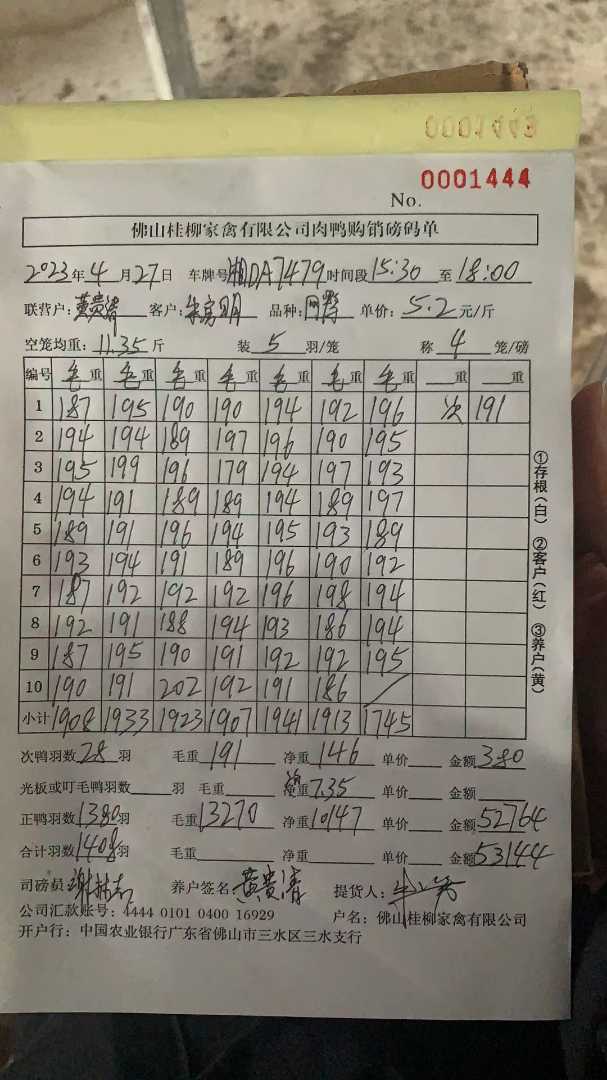 0001443
0001444
No.
佛山桂柳家禽有限公司肉鸭购销磅码单
2023年4月27日 车牌号湘DA7479时间段15:30至18:00
联营户:黄贵清 客户: 品种: 单价:5.2元/斤
空笼均重:11.35斤 装5羽/笼 称4笼/磅
编号 毛重 毛重 毛重 毛重 毛重 毛重 毛重 重 重
1 187 195 190 190 194 192 196 次 191
2 194 194 189 197 196 190 195
3 195 199 196 179 194 197 193
4 194 191 189 189 194 189 197
5 189 191 196 194 195 193 189
6 193 194 191 189 196 190 192
7 187 192 192 192 196 198 194
8 192 191 188 194 193 186 194
9 187 195 190 191 192 192 195
10 190 191 202 192 191 186
小计 1908 1933 1923 1907 1941 1913 1745
①存根(白) ②客户(红) ③养户(黄)
次鸭羽数28羽 毛重191 净重146 单价 金额380
光板或叮毛鸭羽数 羽 毛重 重7.35 单价 金额
正鸭羽数1380羽 毛重13270 净重10147 单价 金额52764
合计羽数1408羽 毛重 净重 单价 金额53144
司磅员: 养户签名:黄贵清 提货人:
公司汇款账号:4444 0101 0400 16929 户名:佛山桂柳家禽有限公司
开户行:中国农业银行广东省佛山市三水区三水支行